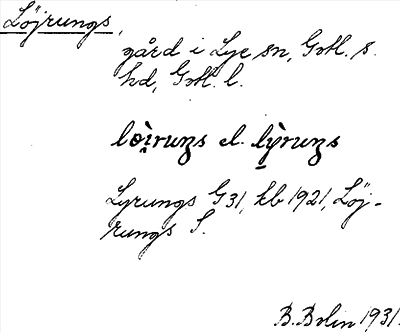 Löjrungs,
gård i Lye sn, Gotl. s.
hd, Gotl. l.
lɷ̀i̯ruŋs el. lỳ̱ruŋs
Lyrungs G31, kb 1921, Löj-
rungs S.
B. Bolin 1931.